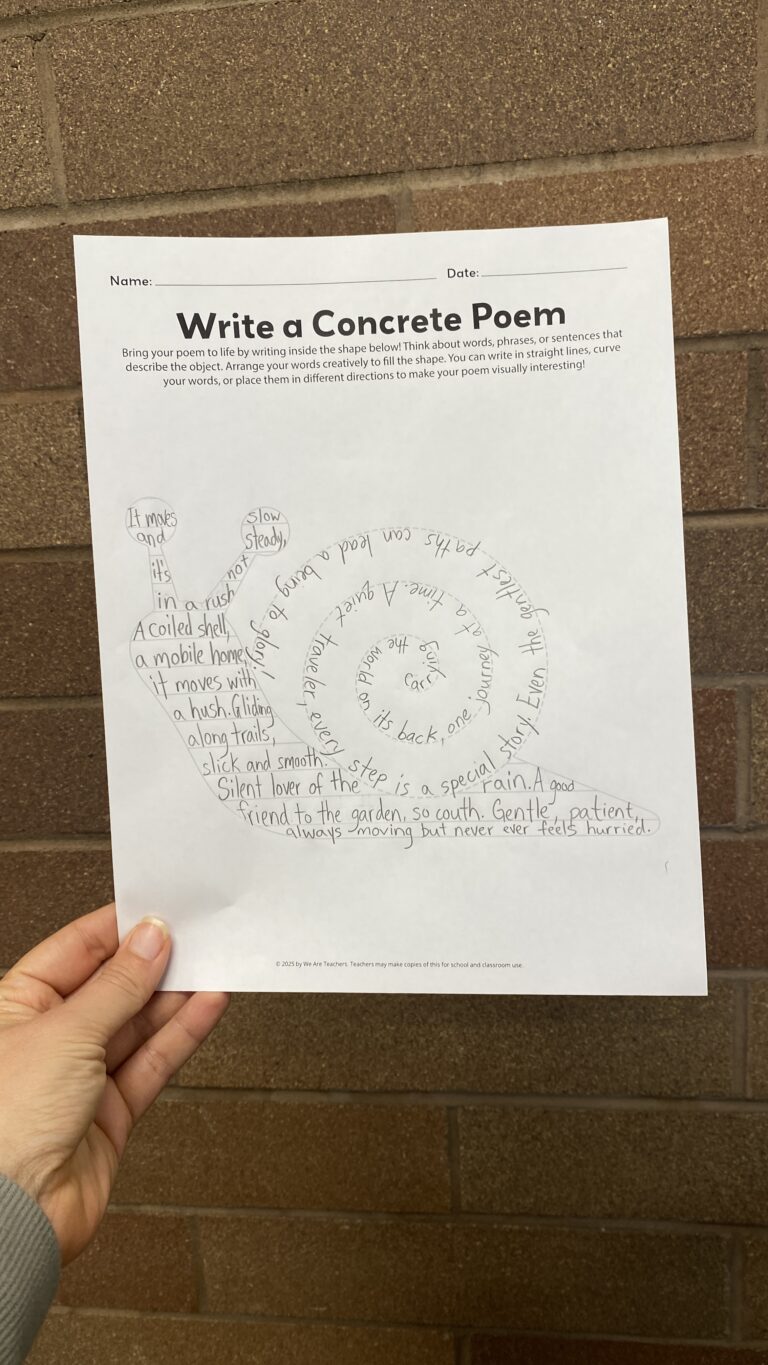 Name:
Date:
Write a Concrete Poem
Bring your poem to life by writing inside the shape below! Think about words, phrases, or sentences that
describe the object. Arrange your words creatively to fill the shape. You can write in straight lines, curve
your words, or place them in different directions to make your poem visually interesting!
It moves slow
and steady,
it's not
in a rush
A coiled shell,
a mobile home,
it moves with
a hush. Gliding
along trails,
slick and smooth.
Silent lover of the rain. A good
friend to the garden, so couth. Gentle, patient,
always moving but never ever feels hurried.
Carrying the world on its back, one journey at a time. A quiet traveler, every step is a special story. Even the gentlest paths can lead a being to glory!
© 2025 by We Are Teachers. Teachers may make copies of this for school and classroom use.